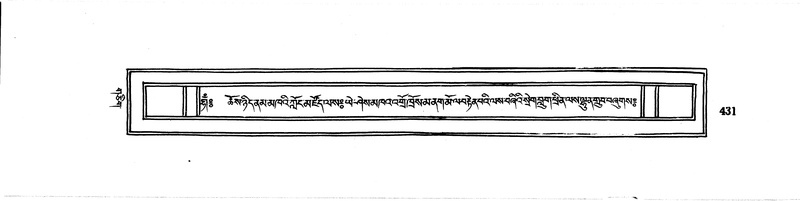 གཅིག
ཨོཾ༔ ཆོས་ཉིད་ནམ་མཁའི་ཀློང་མཛོད་ལས༔ ཡེ་ཤེས་མཁའ་འགྲོ་ཁྲོས་མ་ནག་མོ་ལ་བརྟེན་པའི་ལས་བཞིའི་སྲེག་བླུག་ཕྲིན་ལས་ལྷུན་གྲུབ་བཞུགས༔
431